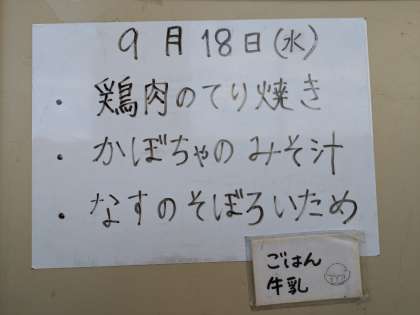 9月18日(水)
・鶏肉のてり焼き
・かぼちゃのみそ汁
・なすのそぼろいため
ごはん
牛乳